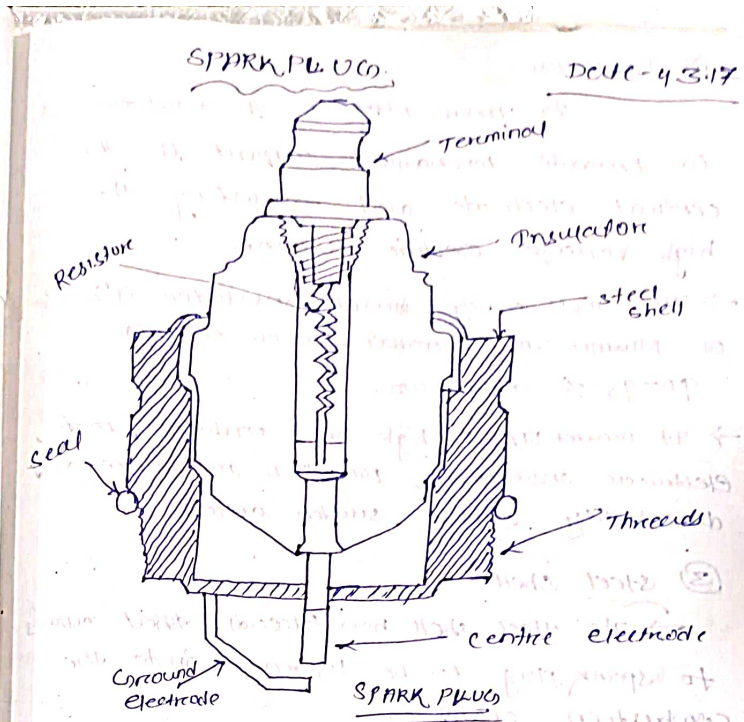 SPARK PLUG
Terminal
Insulator
Resistor
steel
shell
Seal
Threads
Centre electrode
Ground
electrode
SPARK PLUG